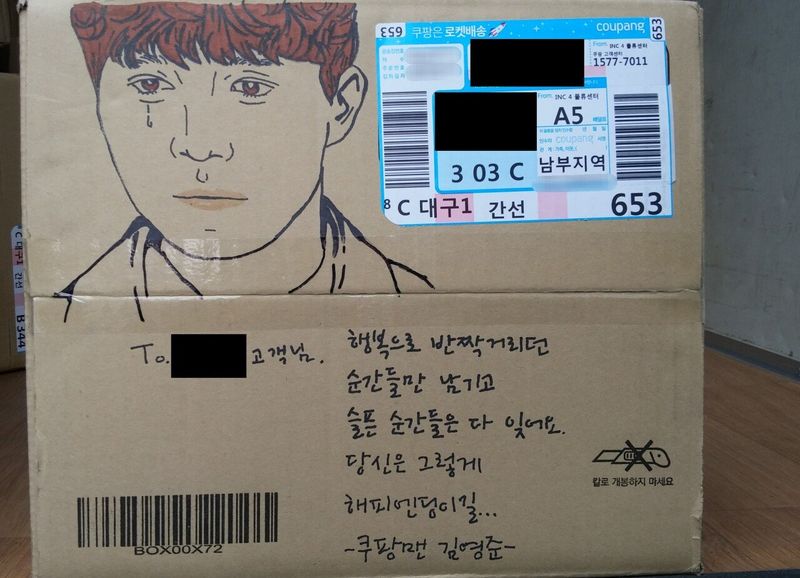 653 쿠팡은 로켓배송 coupang 653
From. INC 4 물류센터
쿠팡 고객센터
1577-7011
From. INC 4 물류센터
A5
coupang
3 03 C 남부지역
8 C 대구1 간선 653
C 대구1 간선
B 344
To. 고객님.
행복으로 반짝거리던
순간들만 남기고
슬픈 순간들은 다 잊어요.
당신은 그렇게
해피엔딩이길...
-쿠팡맨 김영준-
칼로 개봉하지 마세요
BOX00X72